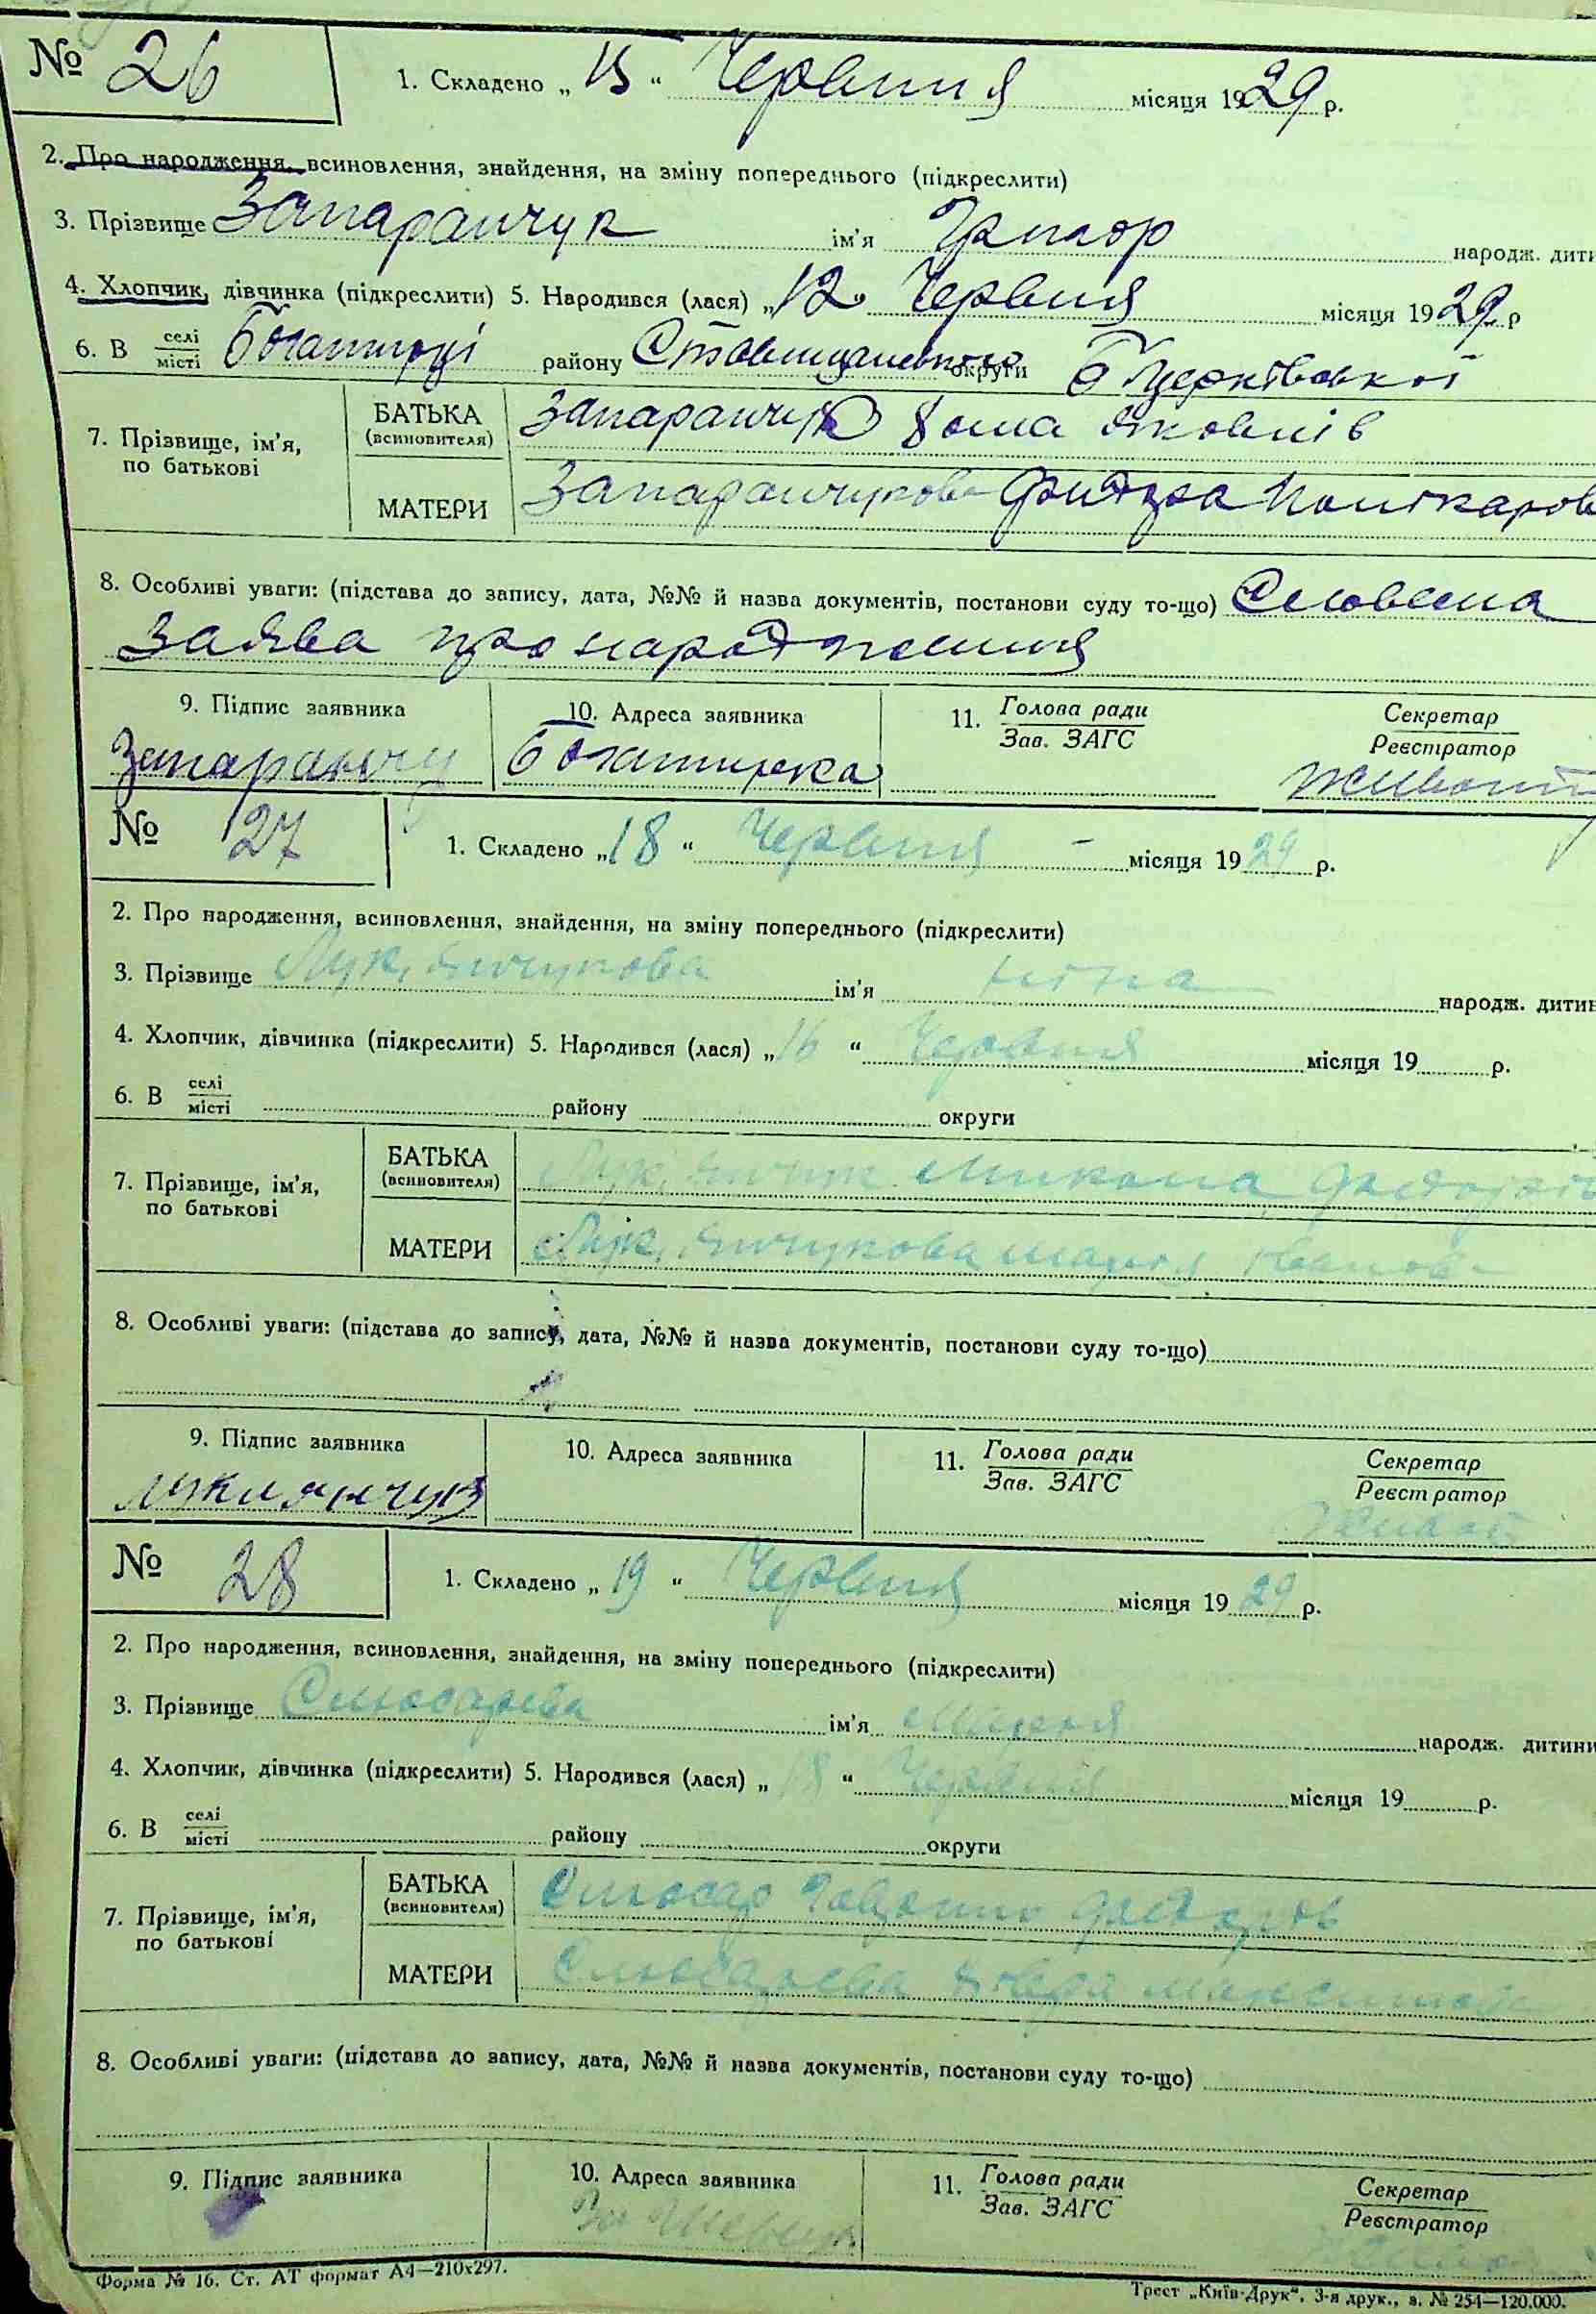 № 26 1. Складено „15“ Червпня місяця 1929 р.
2. Про народження, всиновлення, знайдення, на зміну попереднього (підкреслити)
3. Прізвище Запаранчук ім'я Григор народж. дити
4. Хлопчик, дівчинка (підкреслити) 5. Народився (лася) „12 Червня місяця 1929 р
6. В селі/місті Богатирці району Ставищанського округи Б Церківської
7. Прізвище, ім'я, по батькові
БАТЬКА (всиновителя) Запаранчук Хома Яковлів
МАТЕРИ Запаранчукова
8. Особливі уваги: (підстава до запису, дата, №№ й назва документів, постанови суду то-що) Словесна
Заява про народження
9. Підпис заявника 10. Адреса заявника 11. Голова ради/Зав. ЗАГС Секретар/Реєстратор
Запаранчу Богатирка
№ 27 1. Складено „18“ Червня – місяця 1929 р.
2. Про народження, всиновлення, знайдення, на зміну попереднього (підкреслити)
3. Прізвище Лук'янчукова ім'я Ніна народж. дитин
4. Хлопчик, дівчинка (підкреслити) 5. Народився (лася) „16“ Червня місяця 19 р.
6. В селі/місті району округи
7. Прізвище, ім'я, по батькові
БАТЬКА (всиновителя) Лук'янчук Микола
МАТЕРИ Лук'янчукова Марія Іванов
8. Особливі уваги: (підстава до запису, дата, №№ й назва документів, постанови суду то-що)
9. Підпис заявника 10. Адреса заявника 11. Голова ради/Зав. ЗАГС Секретар/Реєстратор
Лукиянчук
№ 28 1. Складено „19“ Червня місяця 1929 р.
2. Про народження, всиновлення, знайдення, на зміну попереднього (підкреслити)
3. Прізвище Слюсарева ім'я Марія народж. дитини
4. Хлопчик, дівчинка (підкреслити) 5. Народився (лася) „18“ Червня місяця 19 р.
6. В селі/місті району округи
7. Прізвище, ім'я, по батькові
БАТЬКА (всиновителя) Слюсар
МАТЕРИ Слюсарева Максимова
8. Особливі уваги: (підстава до запису, дата, №№ й назва документів, постанови суду то-що)
9. Підпис заявника 10. Адреса заявника 11. Голова ради/Зав. ЗАГС Секретар/Реєстратор
Форма № 16. Ст. АТ формат А4—210х297. Трест „Київ-Друк“, 3-я друк., з. № 254—120.000.